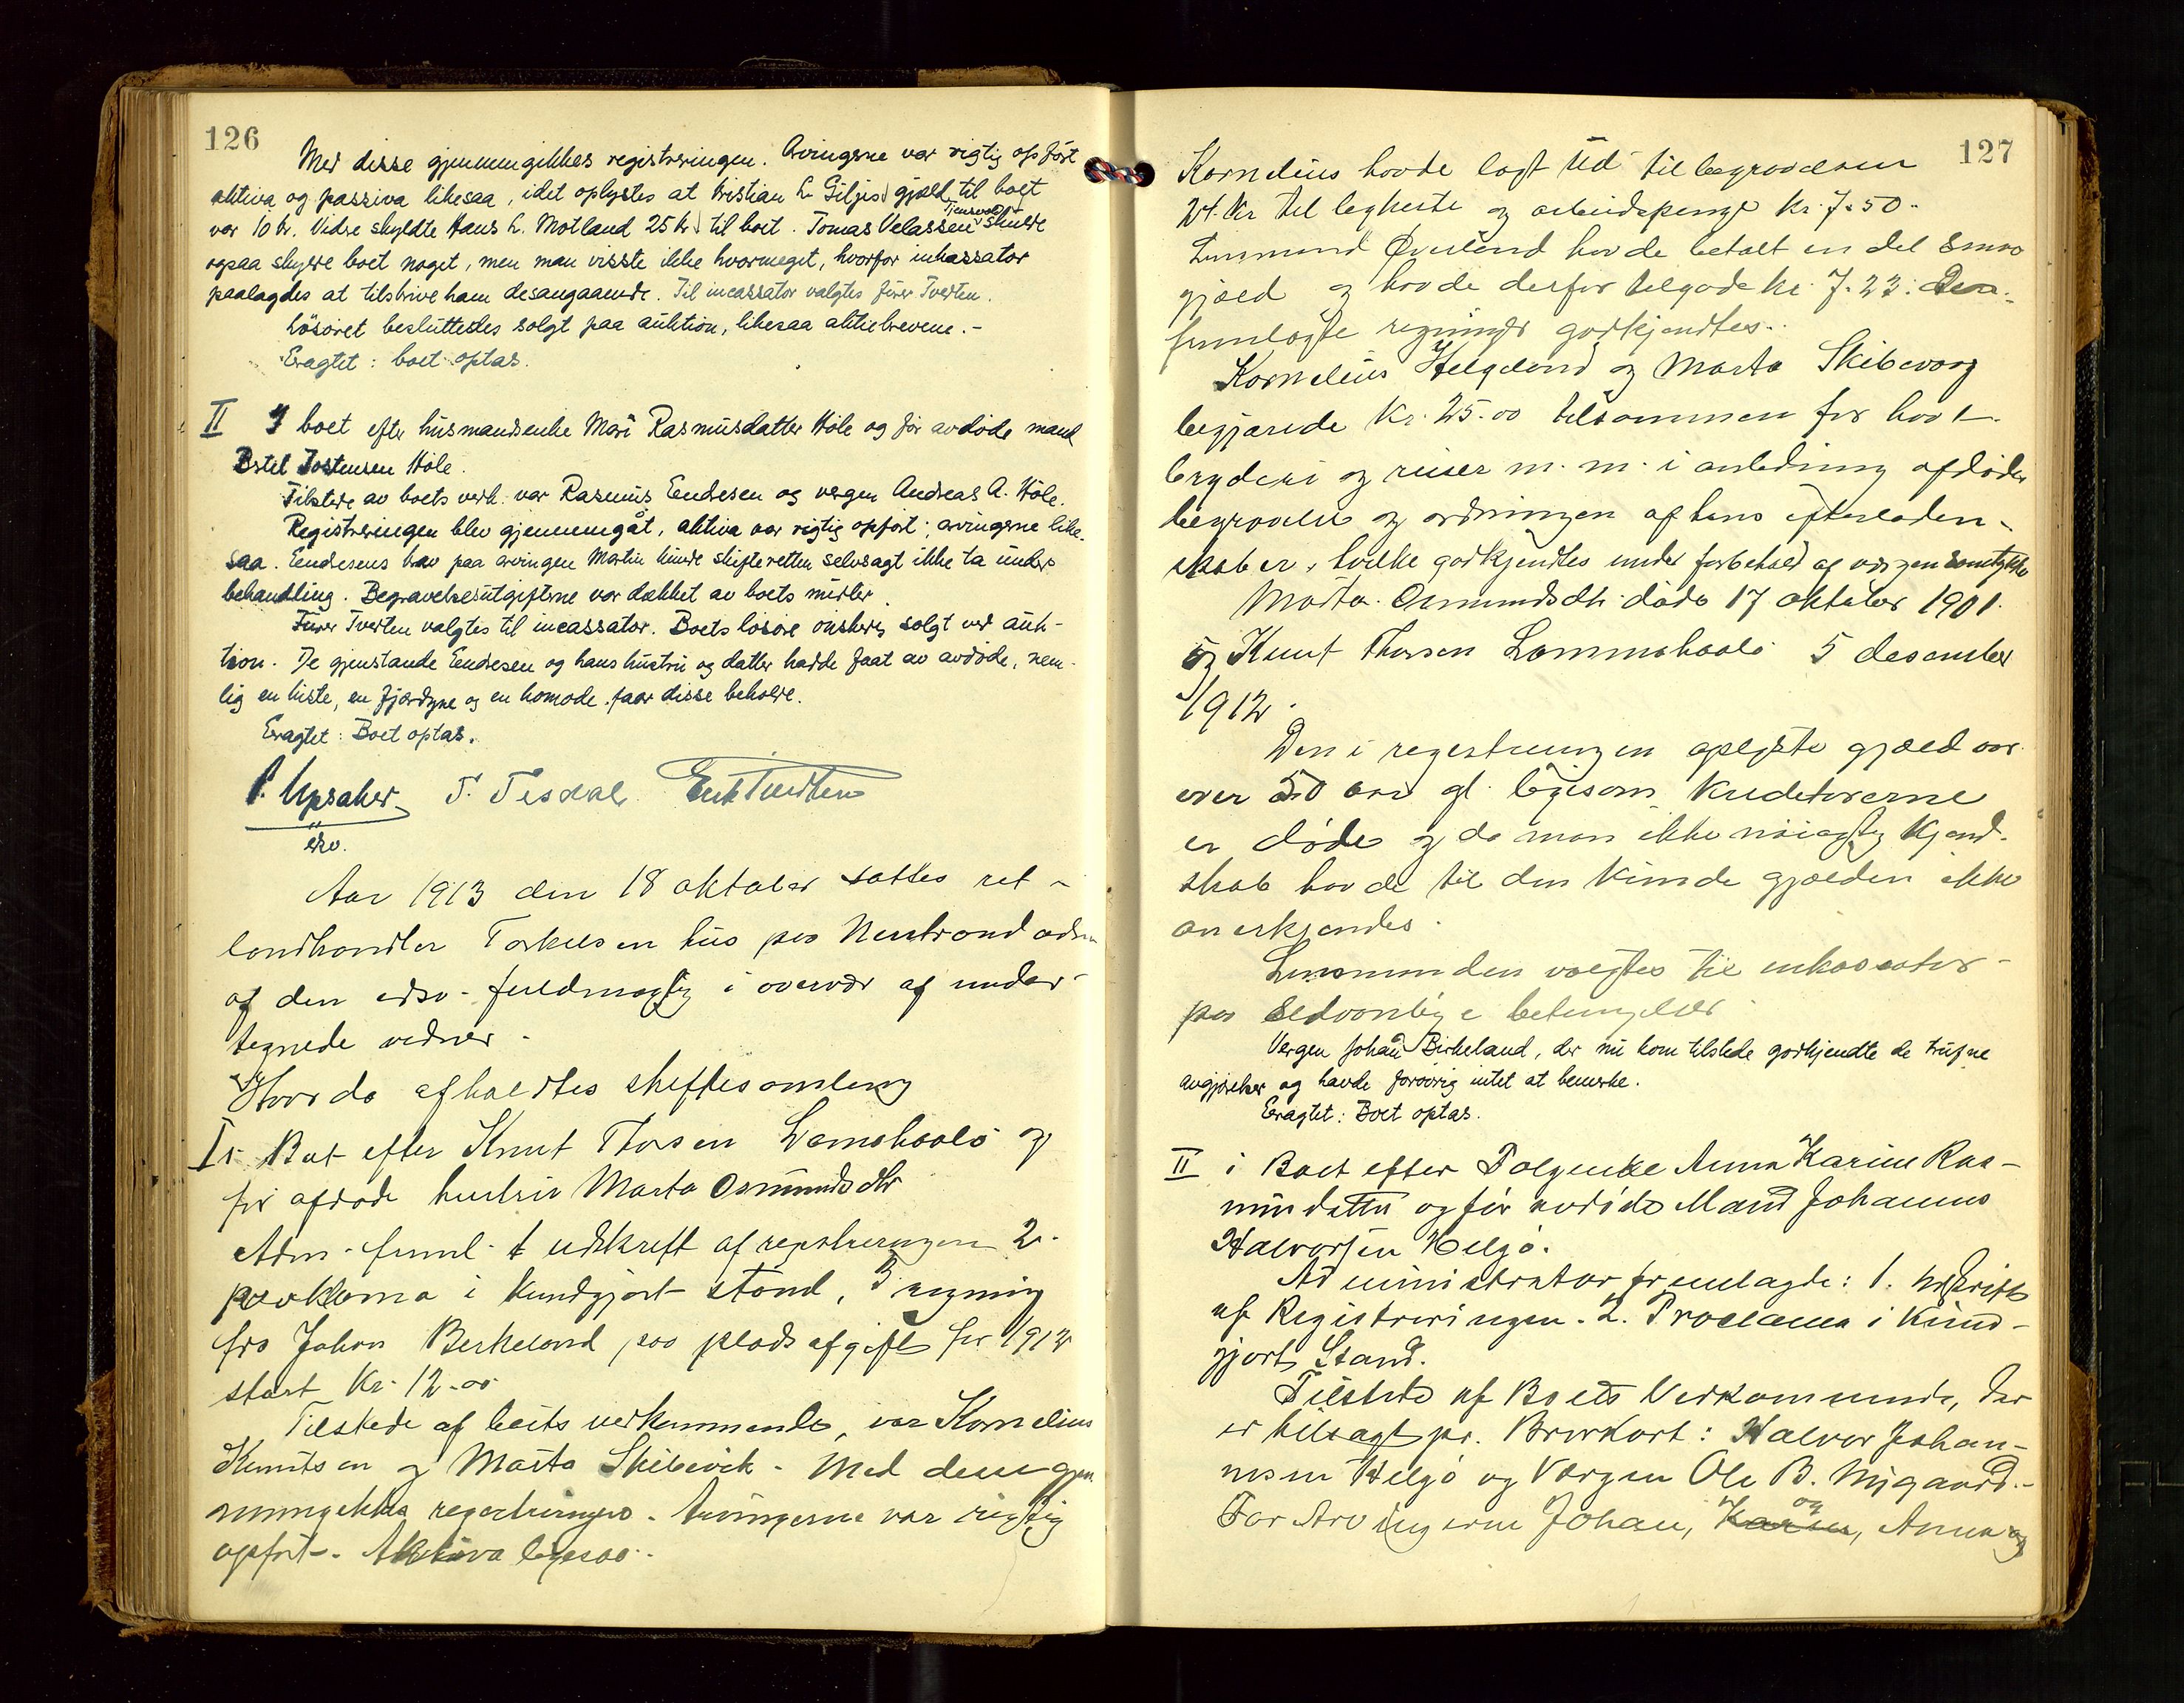 126
Med disse gjennemgikkes registreringen. Arvingerne var rigtig opført
aktiva og passiva likesaa, idet oplystes at Kristian L. Giljes gjæld til boet
var 10 kr. Vidre skyldte Hans L. Motland 25 kr til boet. Tomas Velassen Tjensvold skulde
ogsaa skylde boet noget, men man visste ikke hvormeget, hvorfor inkassator
paalagdes at tilskrive ham desangaaende. Til incassator valgtes fører Tverten.
Løsøret besluttedes solgt paa auktion, likesaa aktiebrevene.-
Eragtet: boet optas.
II I boet efter husmandsenke Mari Rasmusdatter Høle og før avdøde mand
Østen Jostensen Høle.
Tilstede av boets verk. var Rasmus Endresen og vergen Andreas A. Høle.
Registreringen blev gjennemgåt, aktiva var rigtig opført; arvingerne like-
saa. Endresens krav paa arvingen Martin kunde skifteretten selvsagt ikke ta under
behandling. Begravelsesutgifterne var dækket av boets midler.
Fører Tverten valgtes til incassator. Boets løsøre ønskes solgt ved auk-
tion. De gjenstande Endresen og hans hustru og datter hadde faat av avdøde, nem-
lig en kiste, en fjærdyne og en komode, faar disse beholde.
Eragtet: Boet optas.
P. Upsaker T. Tesdal Erik Tverten
eko.
Aar 1913 den 18 oktober sattes ret i
landhandler Torkelsen hus paa Nerstrand adm
af den edsv. fuldmægtig i overvær af under-
tegnede vidner.
Hvor da afholdtes skiftesamling
I i Boet efter Knut Thorsen Lamshaalo og
før afdøde hustru Marta Osmundsdtr
Adm. freml. 1 udskrift af registreringen 2.
proklama i kundgjort stand, 3 regning
fra Johan Berkeland paa pladsafgift for 1912
stort Kr. 12.00
Tilstede af boets vedkommende, var Kornelius
Knutsen og Marta Skibevik. Med dem gjen
nemgikkes registreringen. Arvingerne var rigtig
opført. Aktiva ligesaa.
127
Kornelius havde lagt ud til begravelsen
24 Kr til legkiste og arbeidspenge kr. 7.50.
Lensmand Øverland havde betalt en del smaa
gjæld og havde derfor tilgode kr. 7.23. Den
fremlagte regning godkjendtes.
Kornelius Helgeland og Marta Skibevaag
begjærede Kr. 25.00 tilsammen for hvort
bryderi og reiser m. m. i anledning afdødes
begravelse og ordningen af hans efterladen-
skaber, hvilke godkjendtes under forbehold af værgens samtykke
Marta Osmundsdtr. døde 17 oktober 1901.
og Knut Thorsen Lammehaalo 5 desember
1912.
Den i registreringen oplyste gjæld var
over 50 aar gl. ligesom kreditorerne
er døde og da man ikke nøiagtig kjend-
skab havde til den kunde gjælden ikke
anerkjendes.
Lensmanden valgtes til inkassator
paa sedvanlige betingelser
Vergen Johan Birkeland, der nu kom tilstede godkjendte de trufne
avgjørelser og havde forøvrig intet at bemerke.
Eragtet: Boet optas.
II i Boet efter Folgenke Anna Karine Ras-
musdatter og før avdøde Mand Johannes
Halvorsen Helgø.
Administrator fremlagde: 1. Udskrift
af Registreringen. 2. Proclama i Kund-
gjort Stand.
Tilstede af Boets Vedkommende, der
er tilsagt pr. Brevkort: Halvor Johan-
nesen Helgø og Værgen Ole B. Nygaard.-
For Arvingerne Johan, og Karen, Anna og